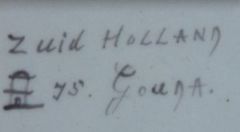 Zuid HOLLAND
III 75. GOUDA.